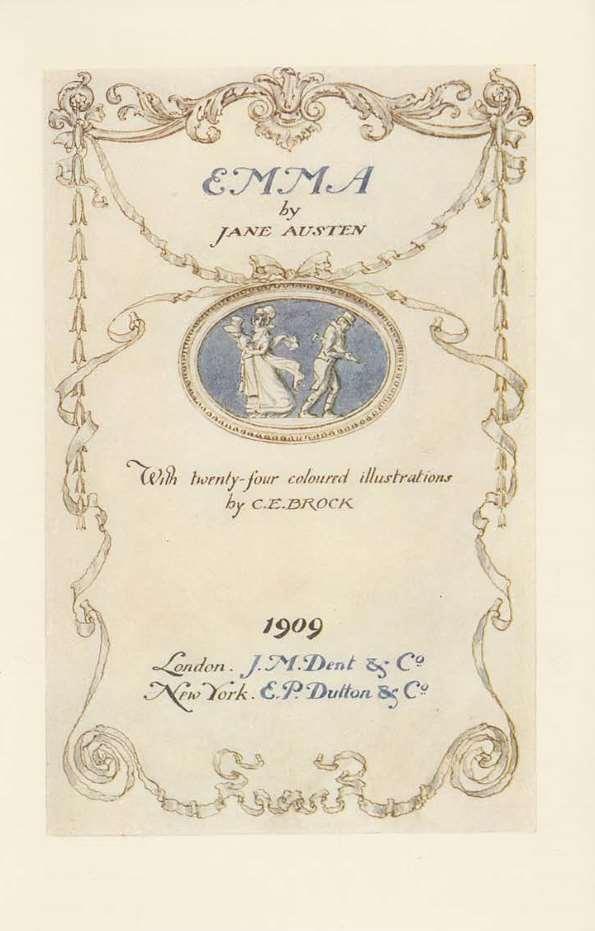 EMMA
by
JANE AUSTEN
With twenty-four coloured illustrations
by C.E.BROCK
1909
London. J.M.Dent & Cº
New York. E.P.Dutton & Cº